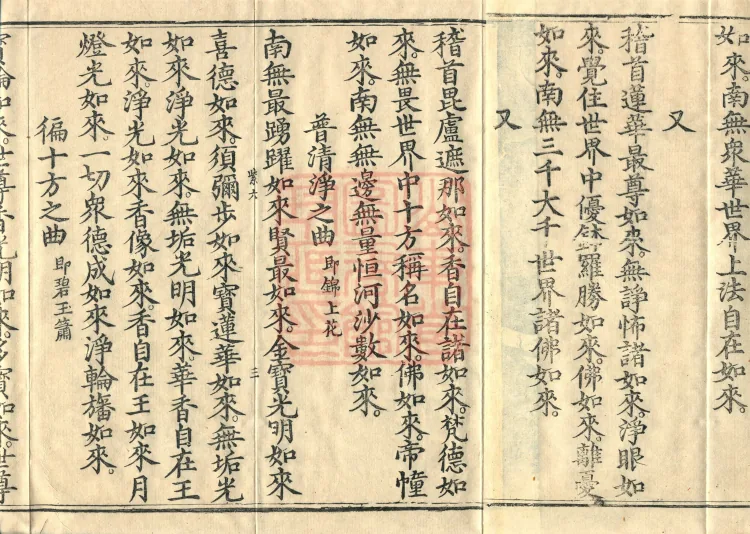 如來。南無衆華世界上法自在如來。
又
稽首蓮華最尊如來。無諍怖諸如來。淨眼如
來。覺住世界中優鉢羅勝如來。佛如來。離憂
如來。南無三千大千世界諸佛如來。
又
稽首毘盧遮那如來。香自在諸如來。梵德如
來。無畏世界中十方稱名如來。佛如來。帝幢
如來。南無無邊無量恒河沙數如來。
普清淨之曲 即錦上花
南無最踴躍如來。賢最如來。金寶光明如來
三
喜德如來。須彌步如來。寶蓮華如來。無垢光
如來淨光如來。無垢光明如來。華香自在王
如來。淨光如來香像如來。香自在王如來月
燈光如來。一切衆德成如來淨輪旛如來。
徧十方之曲 即碧玉簫
寶輪如來。世尊香光明如來。多寶如來。世尊